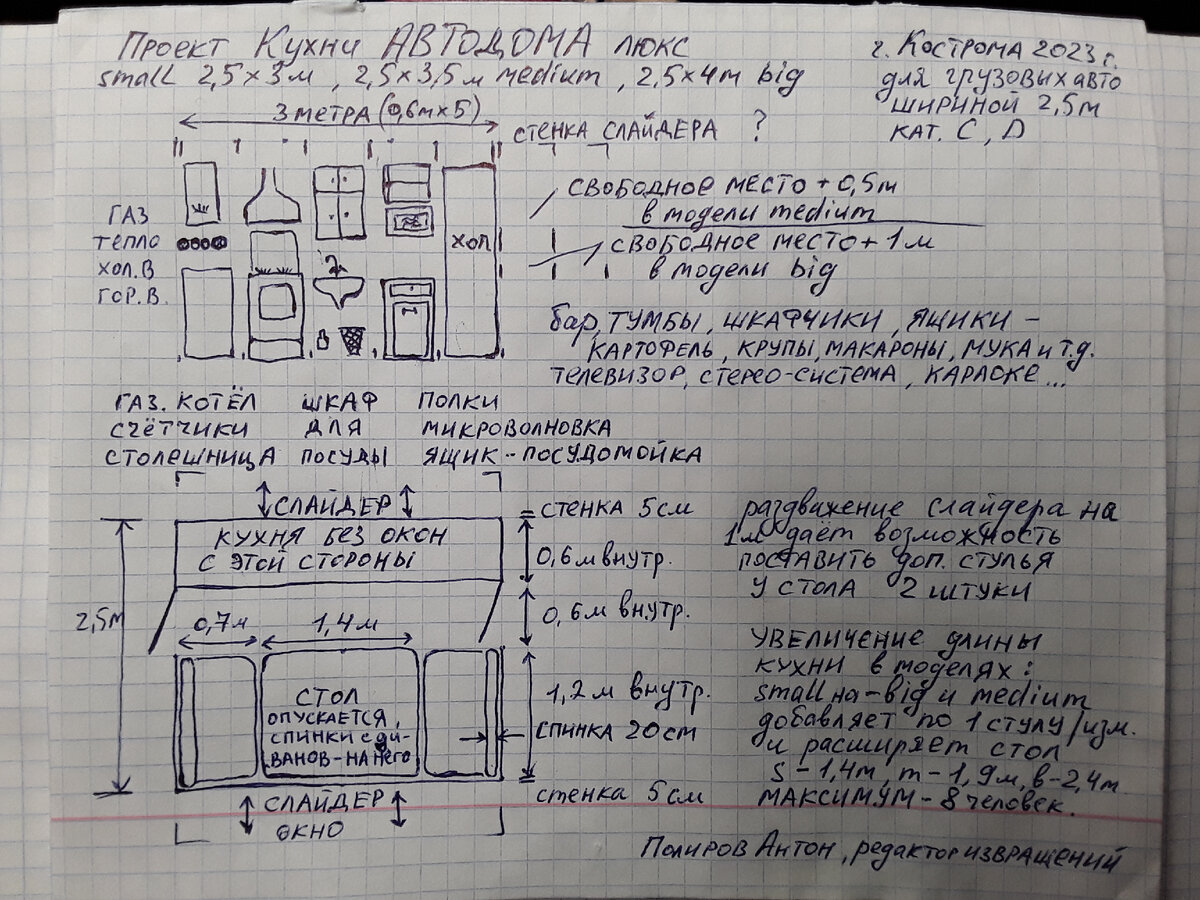 Проект Кухни АВТОДОМА люкс
г. Кострома 2023 г.
small 2,5×3м, 2,5×3,5м medium, 2,5×4м big
для грузовых авто
шириной 2,5м
кат. C, D
3 метра (0,6м×5)
стенка слайдера ?
свободное место + 0,5м
в модели medium
свободное место + 1м
в модели big
ГАЗ
тепло
хол.в
гор.в.
хол
бар, тумбы, шкафчики, ящики -
картофель, крупы, макароны, мука и т.д.
телевизор, стерео-система, караоке...
газ. котёл шкаф полки
счётчики для микроволновка
столешница посуды ящик - посудомойка
слайдер
кухня без окон
с этой стороны
2,5м
0,7м
1,4м
стол
опускается,
спинки с ди-
ванов - на него
слайдер
окно
= стенка 5см
0,6м внутр.
0,6м внутр.
1,2м внутр.
спинка 20см
стенка 5см
раздвижение слайдера на
1м даёт возможность
поставить доп. стулья
у стола 2 штуки
увеличение длины
кухни в моделях:
small на-big и medium
добавляет по 1 стулу/изм.
и расширяет стол
s-1,4м, m-1,9м, b-2,4м
максимум - 8 человек.
Полиров Антон, редактор извращений